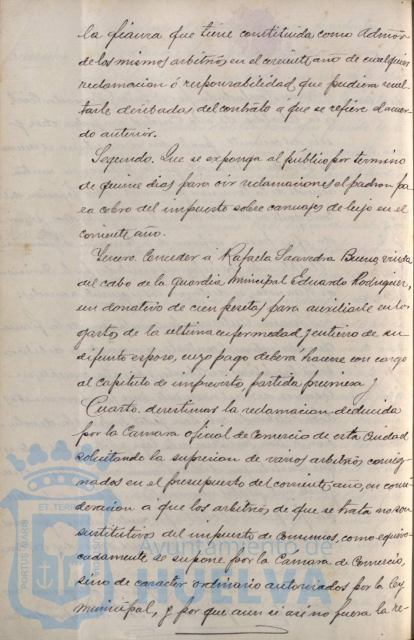 la fianza que tiene constituida como Admor.
de los mismos arbitrios en el corriente año de cualquier
reclamacion ó responsabilidad que pudiera resul-
tarle derivadas del contrato á que se refiere el acuer-
do anterior.
Segundo. Que se exponga al público por termino
de quince dias para oir reclamaciones el padron pa
ra cobro del impuesto sobre carruajes de lujo en el
corriente año.
Tercero. Conceder á Rafaela Saavedra Bueno, viuda
del cabo de la Guardia Municipal Eduardo Rodriguez,
un donativo de cien pesetas para auxiliarle en los
gastos de la ultima enfermedad y entierro de su
difunto esposo, cuyo pago deberá hacerse con cargo
al capitulo de imprevistos, partida primera y
Cuarto. desestimar la reclamacion deducida
por la Cámara oficial de Comercio de esta Ciudad
solicitando la supresion de varios arbitrios consig-
nados en el presupuesto del corriente año, en consi-
deracion a que los arbitrios de que se trata no son
sustitutivos del impuesto de Consumos, como equivo-
cadamente se supone por la Camara de Comercio,
sino de caracter ordinario autorizados por la ley
Municipal, y por que aun si asi no fuera la re-
Ayuntamiento de
HUELVA
PORTUS MARIS
ET TERRAE